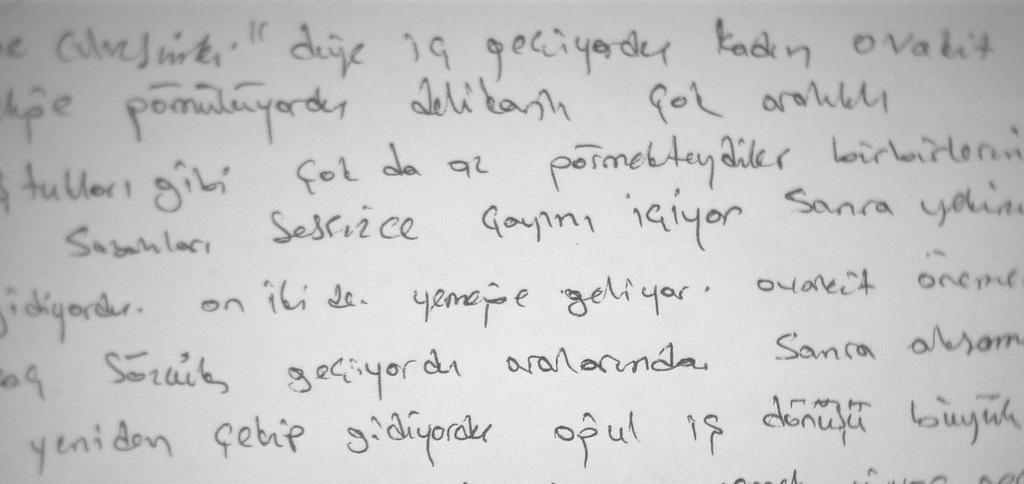 diye iç geçiyordu kadın ovakit
pömülüyordu delikanlı çok aralıklı
tulları gibi çok da az pörmekteydiler birbirlerini
Sabahları Sessizce çayını içiyor Sanra
gidiyordu. on iki de. yemeğe geliyor. ovakit
Sözcük geçiyordu aralarında Sanra aksam
yeniden çekip gidiyordu oğul iş dönüşü büyük